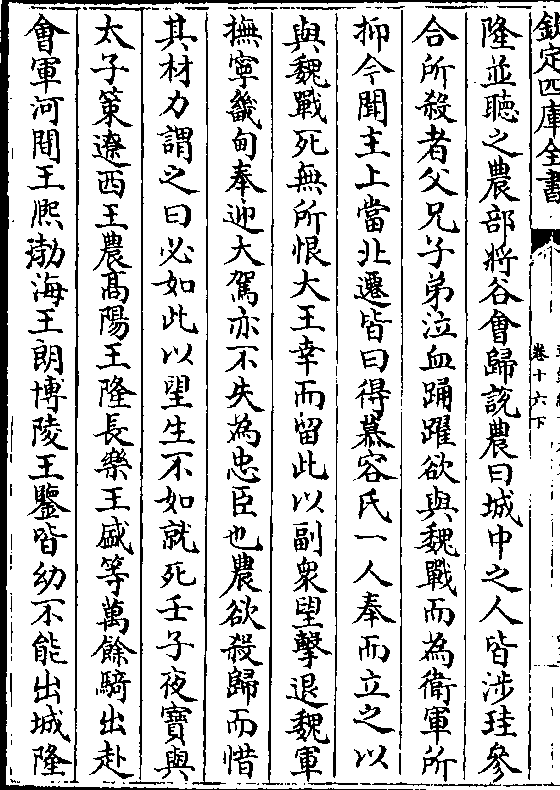 欽定四庫全書
卷十六下
隆並聽之農部將谷會歸説農曰城中之人皆涉珪參
合所殺者父兄子弟泣血踊躍欲與魏戰而為衛軍所
抑今聞主上當北遷皆曰得慕容氏一人奉而立之以
與魏戰死無所恨大王幸而留此以副衆望擊退魏軍
撫寧畿甸奉迎大駕亦不失為忠臣也農欲殺歸而惜
其材力謂之曰必如此以望生不如就死壬子夜寳與
太子䇿遼西王農髙陽王隆長樂王盛等萬餘騎出赴
會軍河間王熙勃海王朗博陵王鑒皆幼不能出城隆